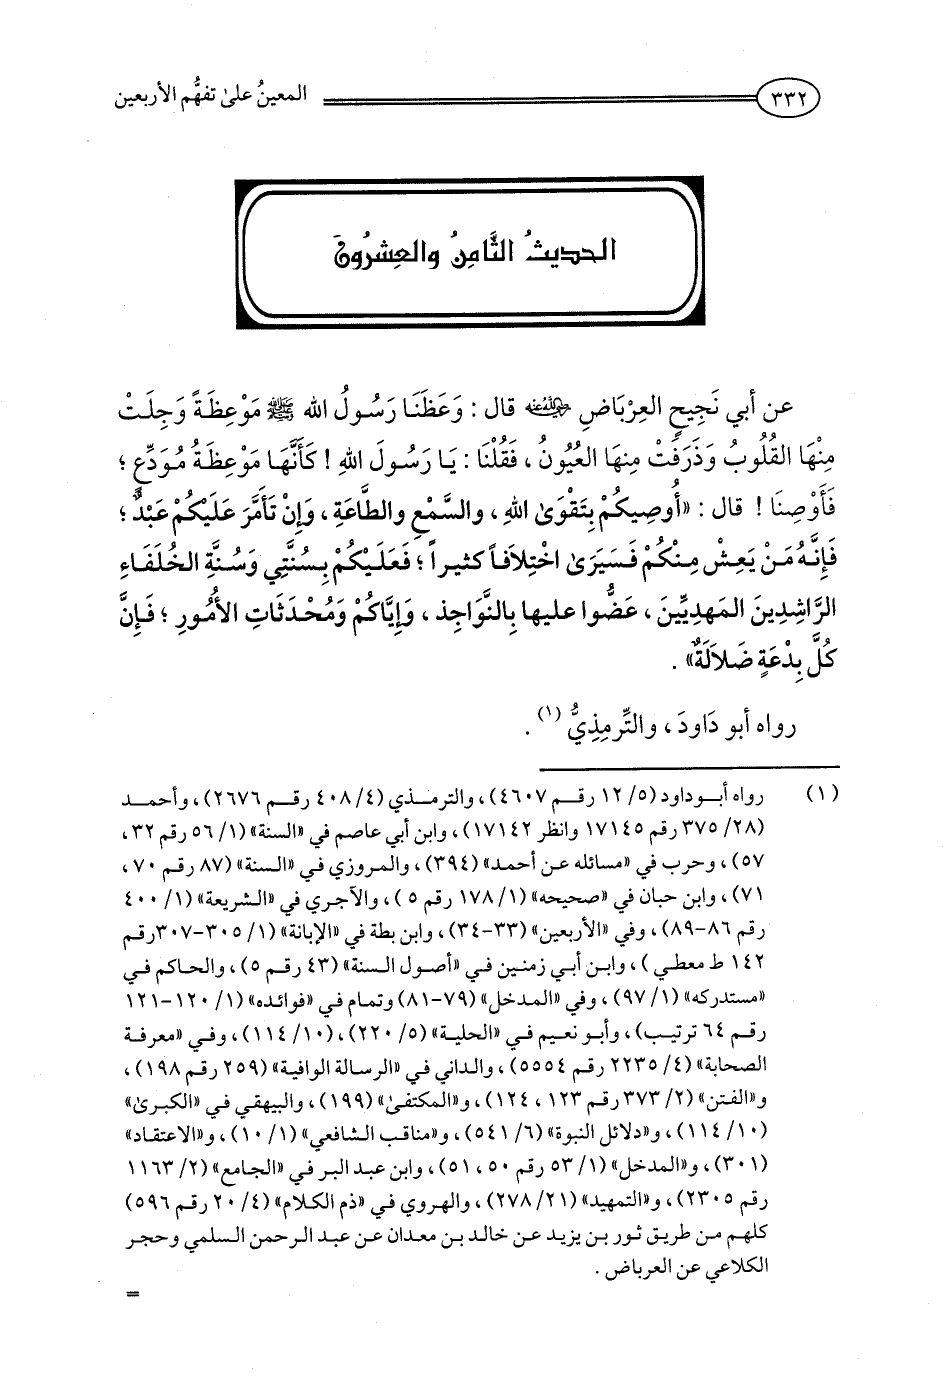 ٣٣٢ المعينُ علىٰ تفهُّم الأربعين
الحديثُ الثَّامِنُ والعِشرُونَ
عن أبي نَجِيحٍ العِرْبَاضِ رضي الله عنه قال : وَعَظَنَا رَسُولُ الله ﷺ مَوْعِظَةً وَجِلَتْ
مِنْهَا القُلُوبُ وَذَرَفَتْ مِنهَا العُيُونُ ، فَقُلْنَا : يَا رَسُولَ اللهِ ! كَأَنَّهَا مَوْعِظَةُ مُوَدِّعٍ ؛
فَأَوْصِنَا ! قال : «أُوصِيكُمْ بِتَقْوَىٰ اللهِ ، والسَّمْعِ والطَّاعَةِ ، وَإِنْ تَأَمَّرَ عَلَيْكُمْ عَبْدٌ ؛
فَإِنَّهُ مَنْ يَعِشْ مِنْكُمْ فَسَيَرَىٰ اخْتِلَافَاً كثيراً ؛ فَعَلَيْكُمْ بِسُنَّتِي وَسُنَّةِ الخُلَفَاءِ
الرَّاشِدِينَ المَهدِيِّينَ ، عَضُّوا عليها بِالنَّوَاجِذ ، وَإِيَّاكُمْ وَمُحْدَثَاتِ الأُمُورِ ؛ فَإِنَّ
كُلَّ بِدْعَةٍ ضَلَالَةٌ» .
رواه أبو دَاودَ ، والتِّرمِذِيُّ (١) .
(١) رواه أبوداود (٥/ ١٢ رقم ٤٦٠٧)، والترمذي (٤/ ٤٠٨ رقم ٢٦٧٦)، وأحمد
(٢٨/ ٣٧٥ رقم ١٧١٤٥ وانظر ١٧١٤٢)، وابن أبي عاصم في «السنة» (١/ ٥٦ رقم ٣٢،
٥٧)، وحرب في «مسائله عن أحمد» (٣٩٤)، والمروزي في «السنة» (٨٧ رقم ٧٠ ،
٧١)، وابن حبان في «صحيحه» (١/ ١٧٨ رقم ٥)، والآجري في «الشريعة» (١/ ٤٠٠
رقم ٨٦-٨٩)، وفي «الأربعين» (٣٣-٣٤)، وابن بطة في «الإبانة» (١/ ٣٠٥-٣٠٧رقم
١٤٢ ط معطي)، وابن أبي زمنين في «أصول السنة» (٤٣ رقم ٥)، والحاكم في
«مستدركه» (١/ ٩٧)، وفي «المدخل» (٧٩-٨١) وتمام في «فوائده» (١/ ١٢٠-١٢١
رقم ٦٤ ترتيب)، وأبو نعيم في «الحلية» (٥/ ٢٢٠)، (١٠/ ١١٤)، وفي «معرفة
الصحابة» (٤/ ٢٢٣٥ رقم ٥٥٥٤)، والداني في «الرسالة الوافية» (٢٥٩ رقم ١٩٨)،
و«الفتن» (٢/ ٣٧٣ رقم ١٢٣ ، ١٢٤)، و«المكتفىٰ» (١٩٩)، والبيهقي في «الكبرىٰ»
(١٠/ ١١٤)، و«دلائل النبوة» (٦/ ٥٤١)، و«مناقب الشافعي» (١/ ١٠)، و«الاعتقاد»
(٣٠١)، و«المدخل» (١/ ٥٣ رقم ٥٠، ٥١)، وابن عبد البر في «الجامع» (٢/ ١١٦٣
رقم ٢٣٠٥)، و«التمهيد» (٢١/ ٢٧٨)، والهروي في «ذم الكلام» (٤/ ٢٠ رقم ٥٩٦)
كلهم من طريق ثور بن يزيد عن خالد بن معدان عن عبد الرحمن السلمي وحجر
الكلاعي عن العرباض .
=